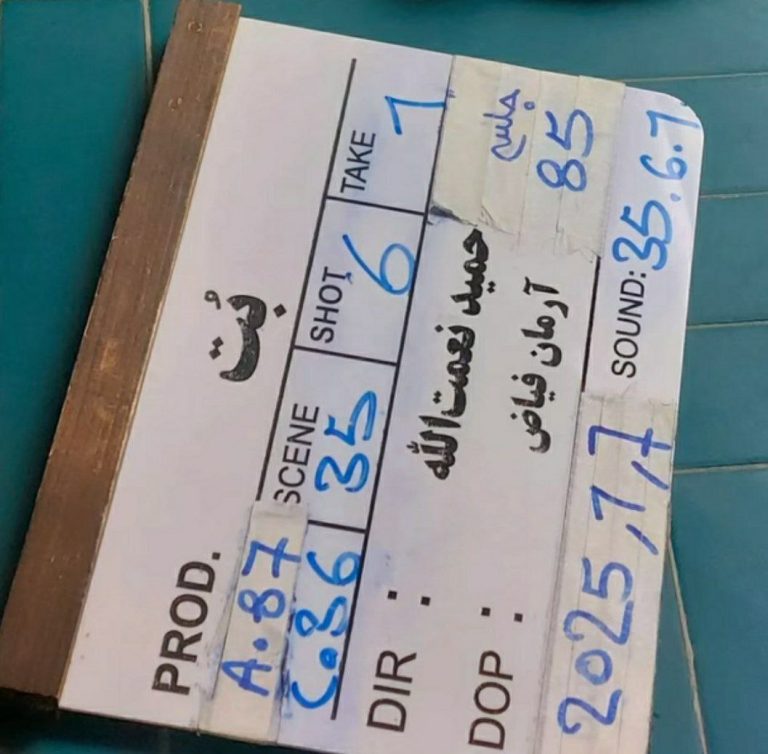 PROD. بُت
A.87 SCENE SHOT TAKE
C.86 35 6 1
DIR : حمید نعمت‌الله جلسه
DOP : آرمان فیاض 85
2025,1,7 SOUND: 35.6.1